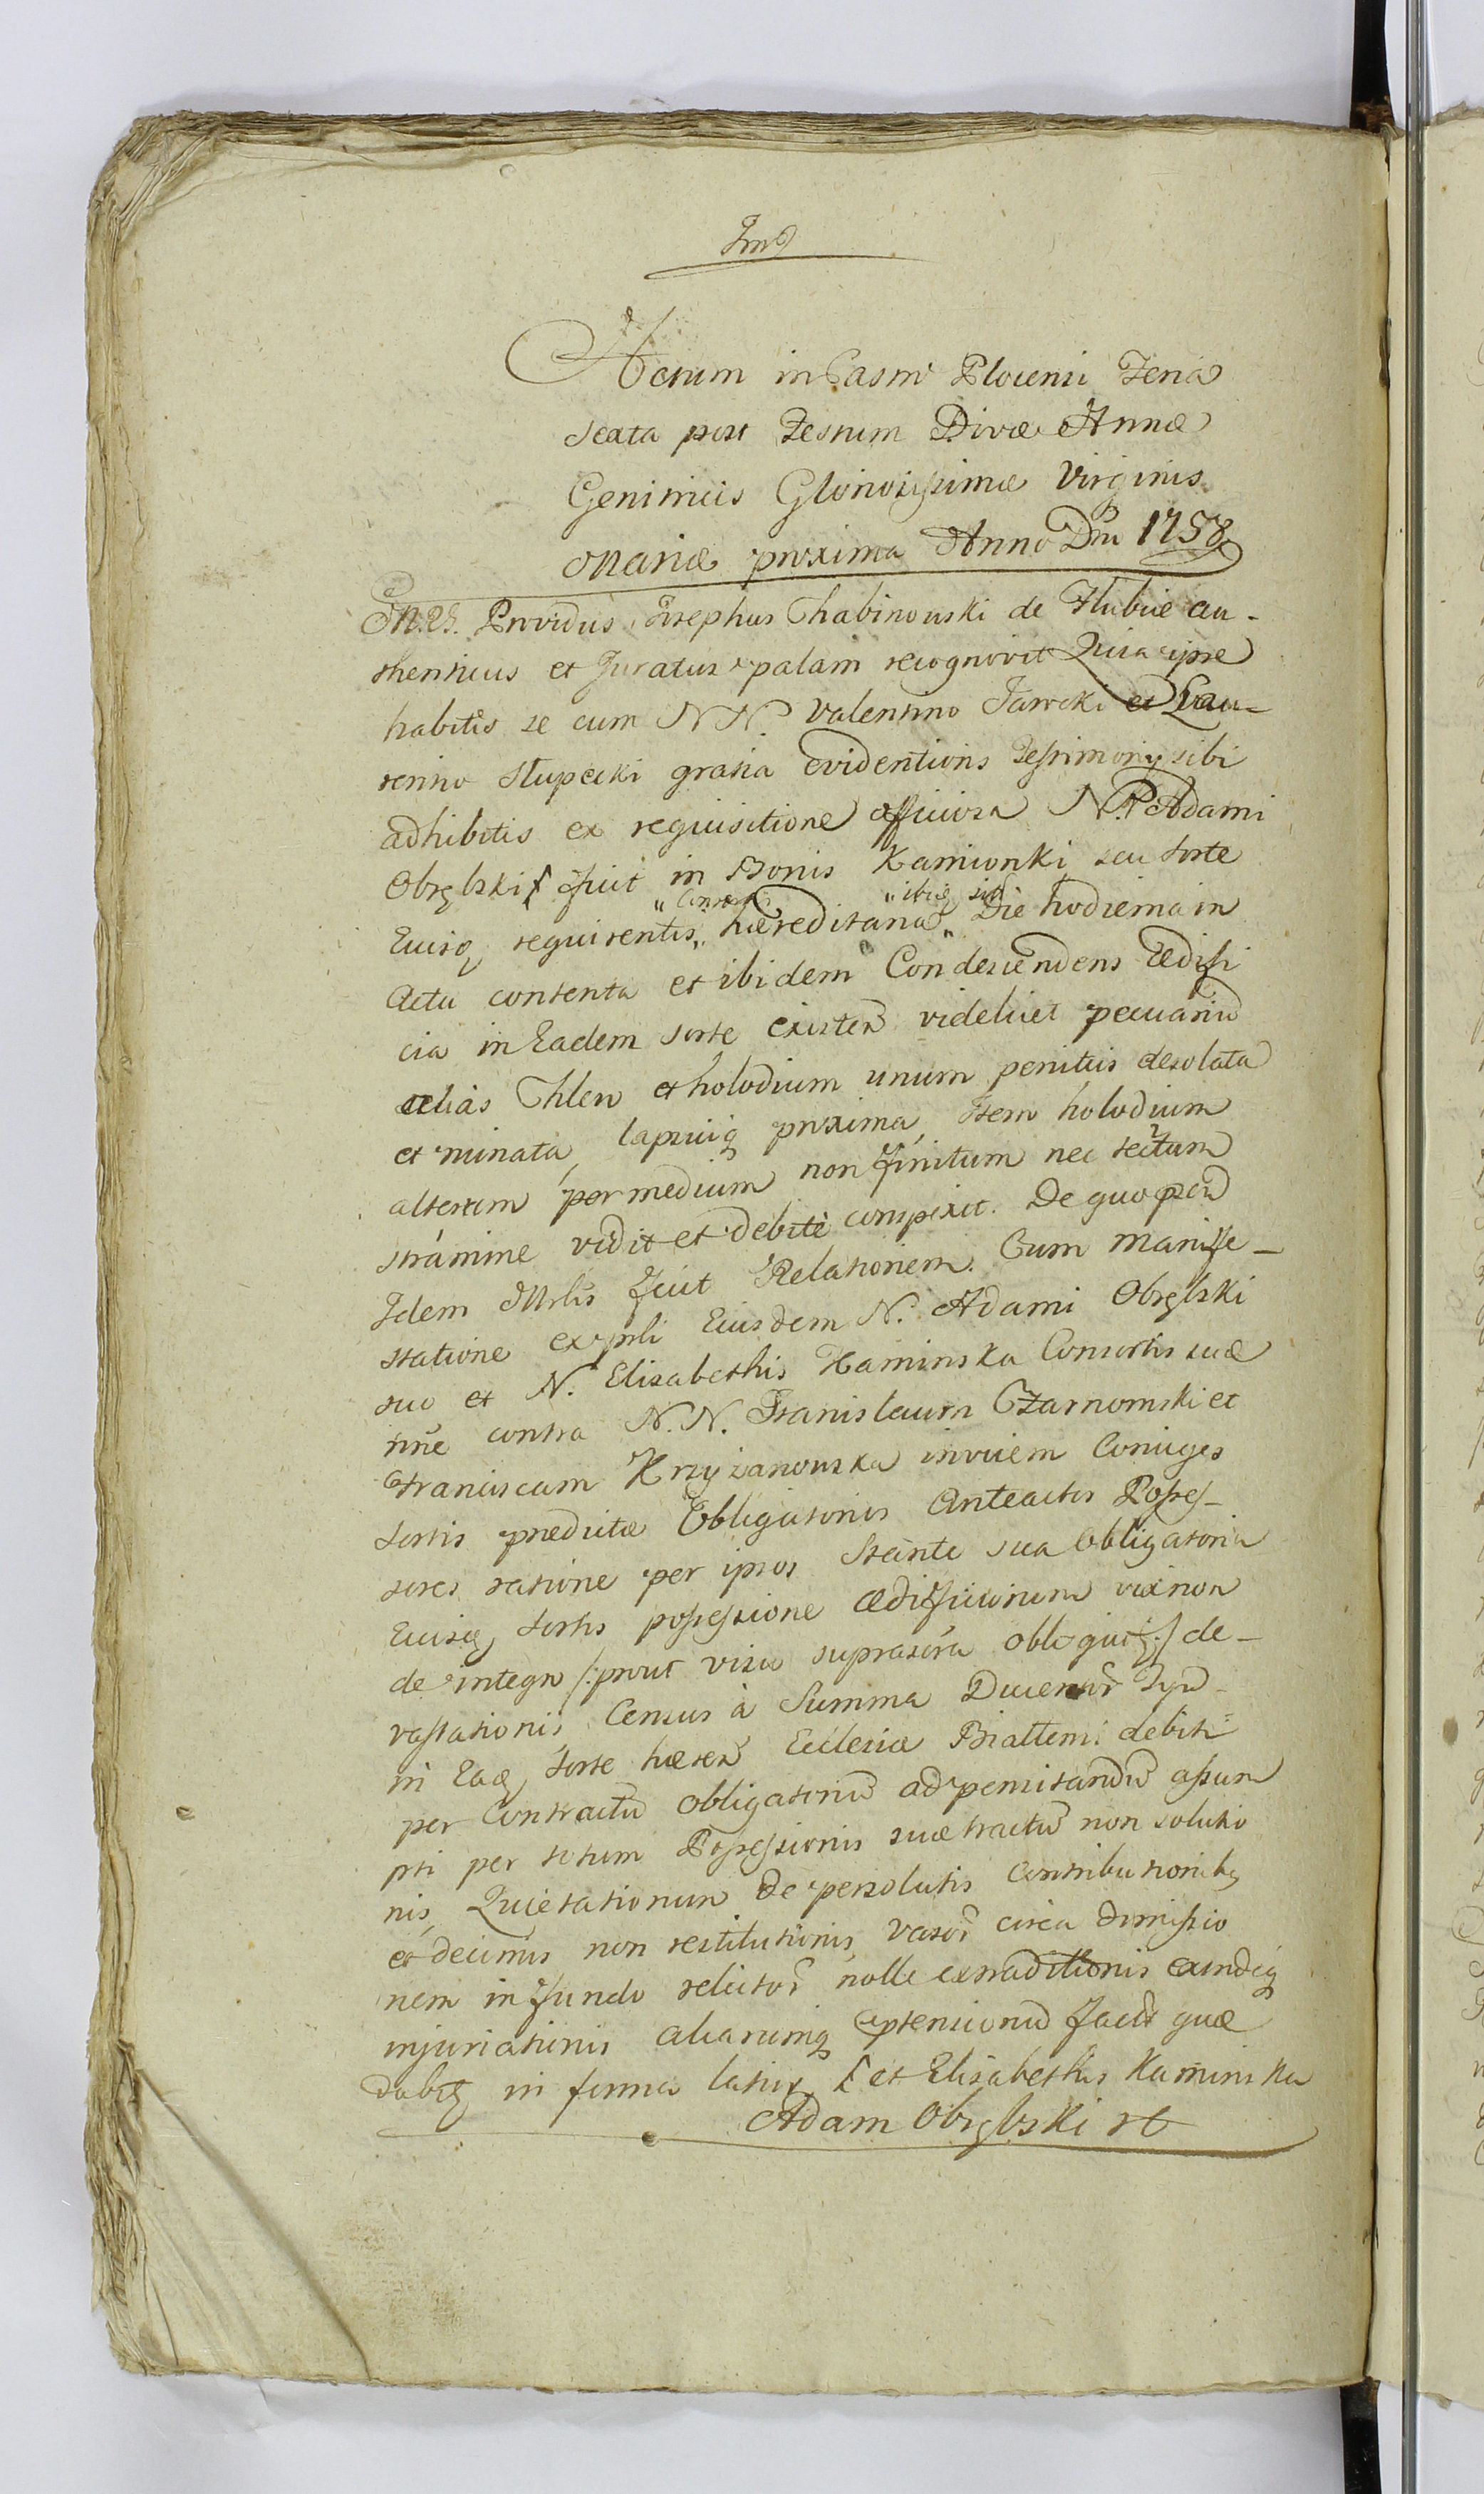 Ind
Actum in Castro Plocensi Feria
Sexta post Festum Divæ Annæ
Genitricis Gloriosissimæ Virginis
Mariæ proxima Anno Dni 1758
Providus Josephus Chabinowski de Słubice au-
thenticus et Juratus palam recognovit Quia ipse
habitis se cum N N. Valentino Jarocki et Lau-
rentino Słupecki gratia Evidentioris Testimonij sibi
adhibitis ex requisitione officiosa N. P. Adami
Obrębski fuit in Bonis Kamionki seu Sorte
Eiusq requirentis „Consortis„ hæreditaria „ibiq sit„ Die hodierna in
Actu contenta et ibidem Condescendens Ædifi
cia in Eadem sorte Existen videlicet pecuariu
alias Chlew et holodium unum penitus desolata
et ruinata, lapsuiq proxima, Item holodium
alterum per medium non finitum nec tectum
stramine vidit et debite conspexit. De quo præ
Idem Mrlis fecit Relationem. Cum manife-
statione ex pnli Eiusdem N. Adami Obrębski
suo et N. Elisabethis Kaminska Consortis suæ
nne contra N. N. Stanislaum Czarnomski et
Franciscam Krzyżanowska invicem Coniuges
Sortis prædictæ Obligatorios Anteactos Posses-
sores ratione per ipsos Stante sua Obligatoria
Eiusq Sortis possessione ædificiorum vix non
de integro /: prout visio suprascra obloquit :/ de-
vastationis, Census à Summa Ducentor Tyn
in Eaq Sorte hæren Ecclesiæ Bialtem: debiti
per Contractu obligatoriu ad pensitandu assum
pti per totum Possessionis suæ tractu non solutio
nis, Quietationum de persolutis Contributionibq
et decimis non restitutionis, vasor circa dimissio
nem in fundo relictor nolle extraditionis exindeq
injuriationis aliarumq prtensionu facit quæ
dabitq in forma latiori et Elisabethis Kaminska
Adam Obrębski